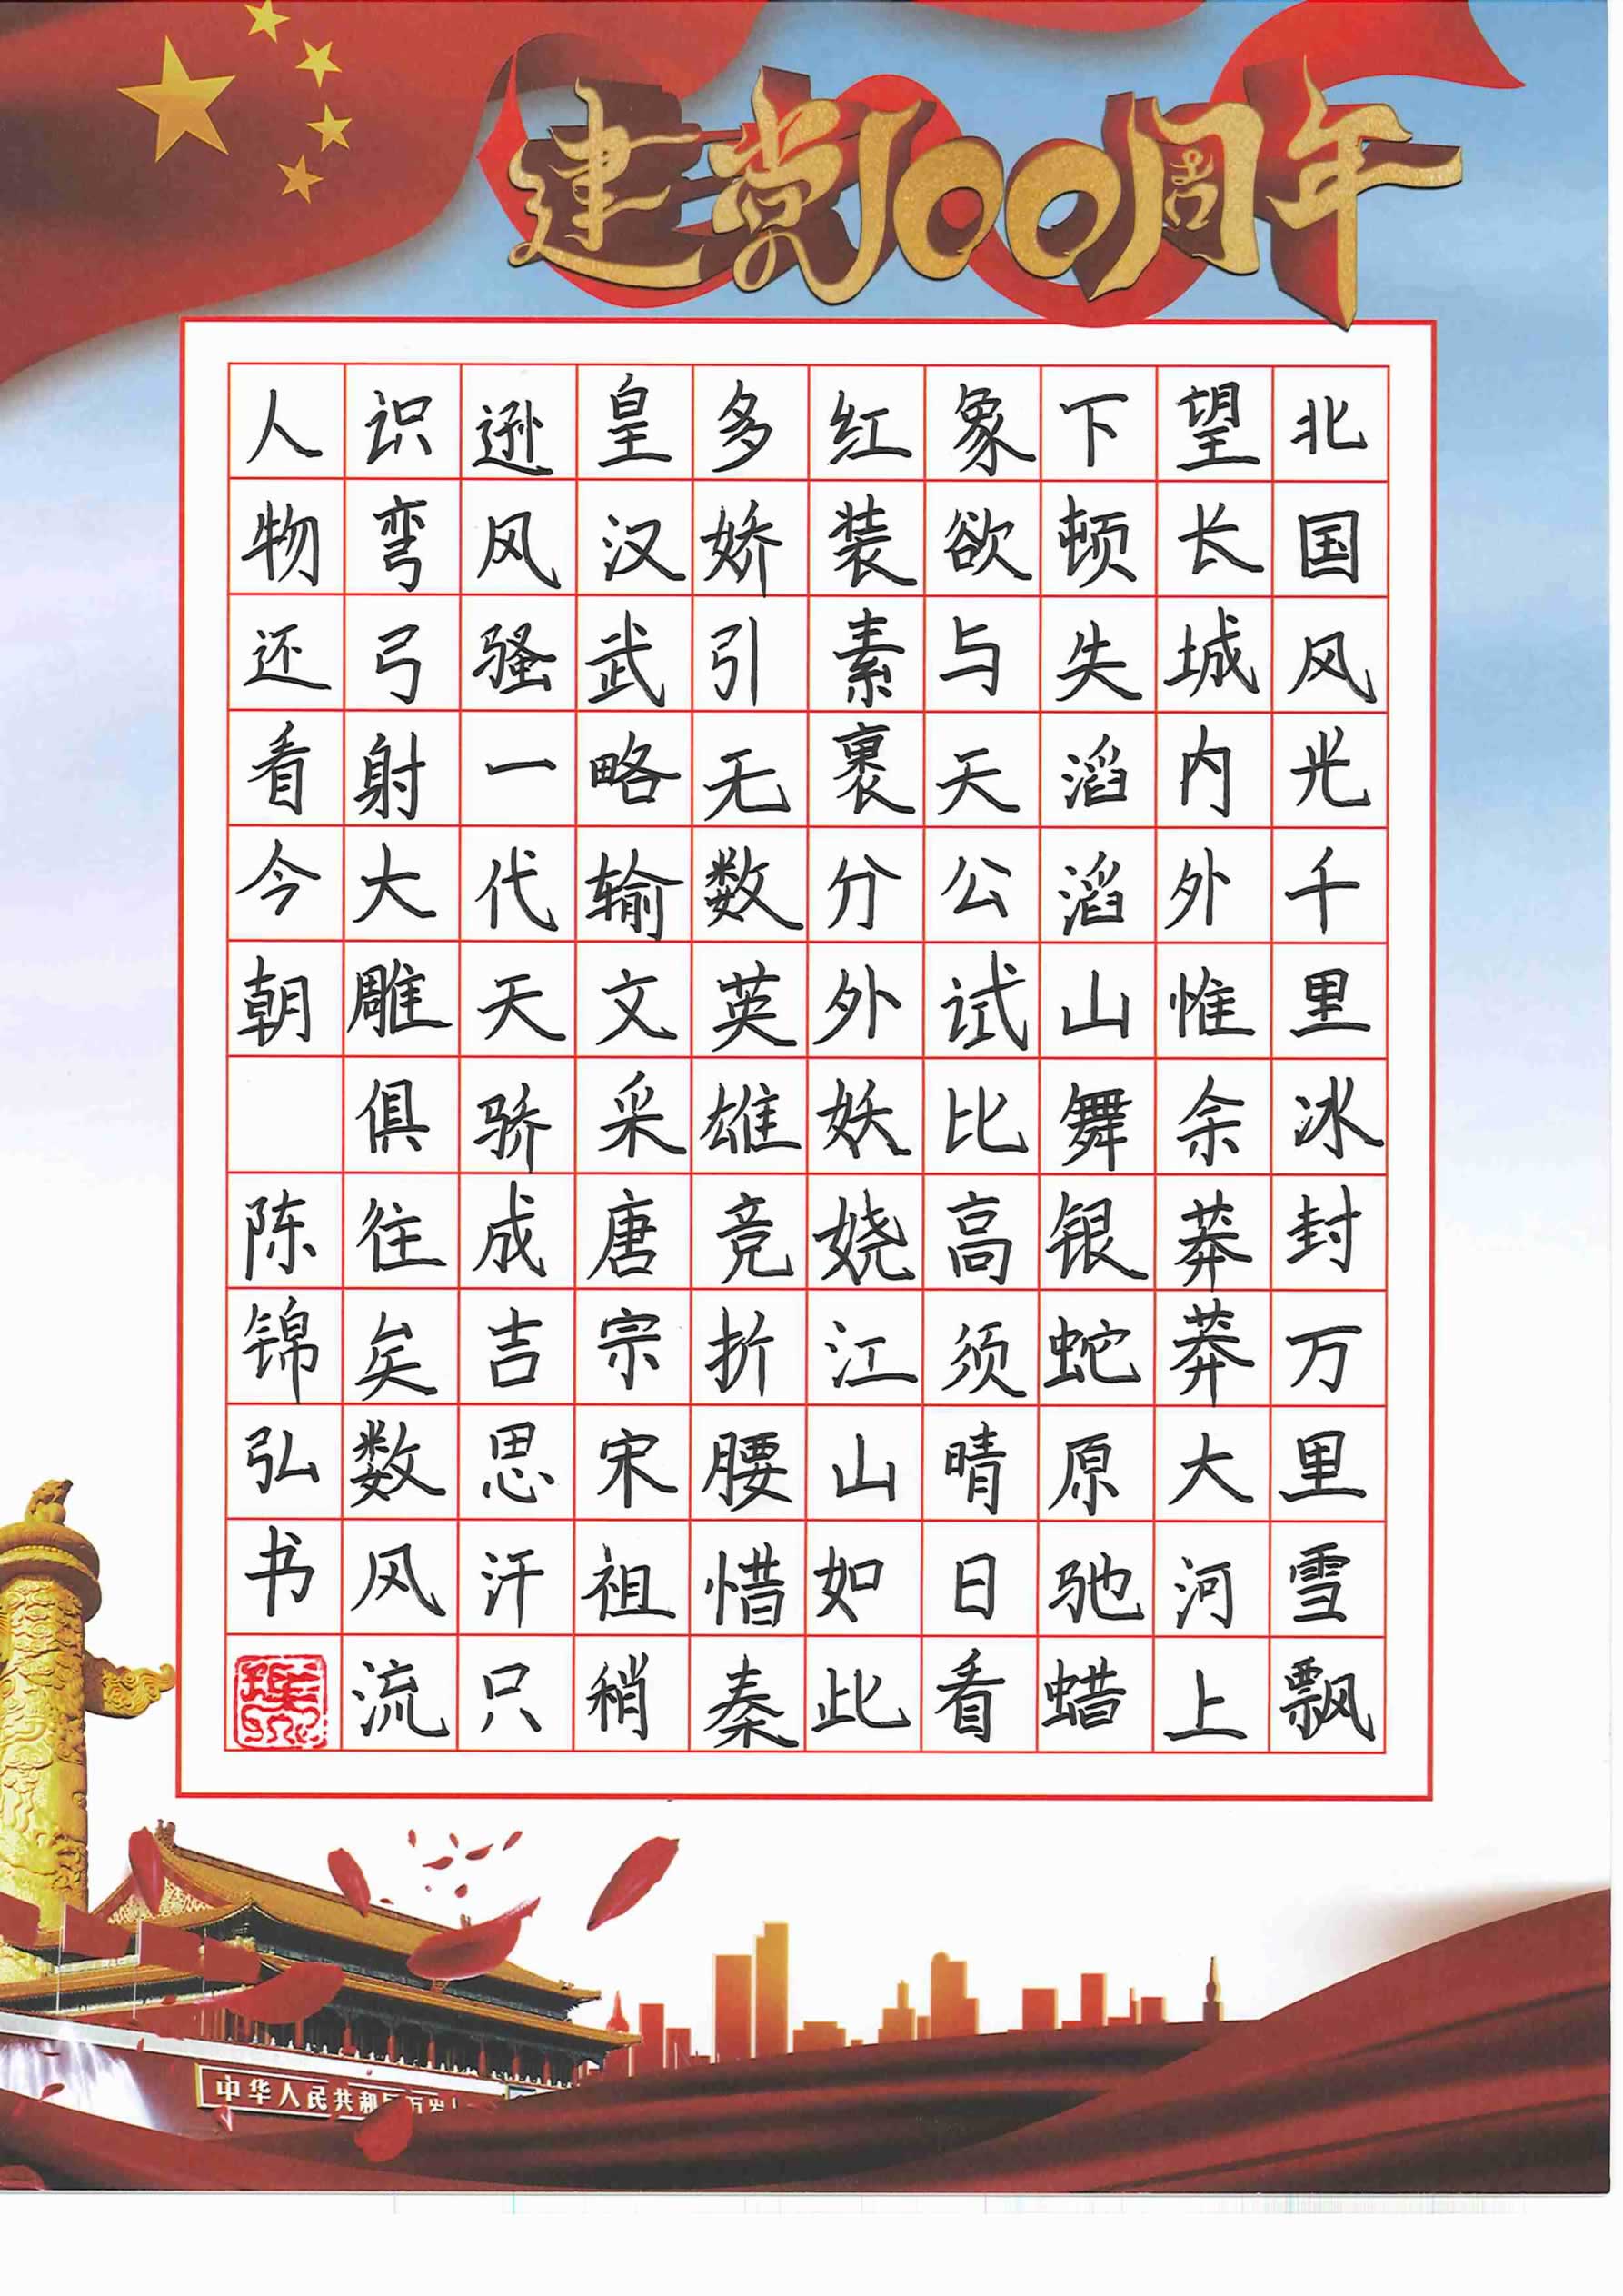 建党100周年
北国风光千里冰封万里雪飘
望长城内外惟余莽莽大河上
下顿失滔滔山舞银蛇原驰蜡
象欲与天公试比高须晴日看
红装素裹分外妖娆江山如此
多娇引无数英雄竞折腰惜秦
皇汉武略输文采唐宗宋祖稍
逊风骚一代天骄成吉思汗只
识弯弓射大雕俱往矣数风流
人物还看今朝 陈锦弘书
中华人民共和国万岁